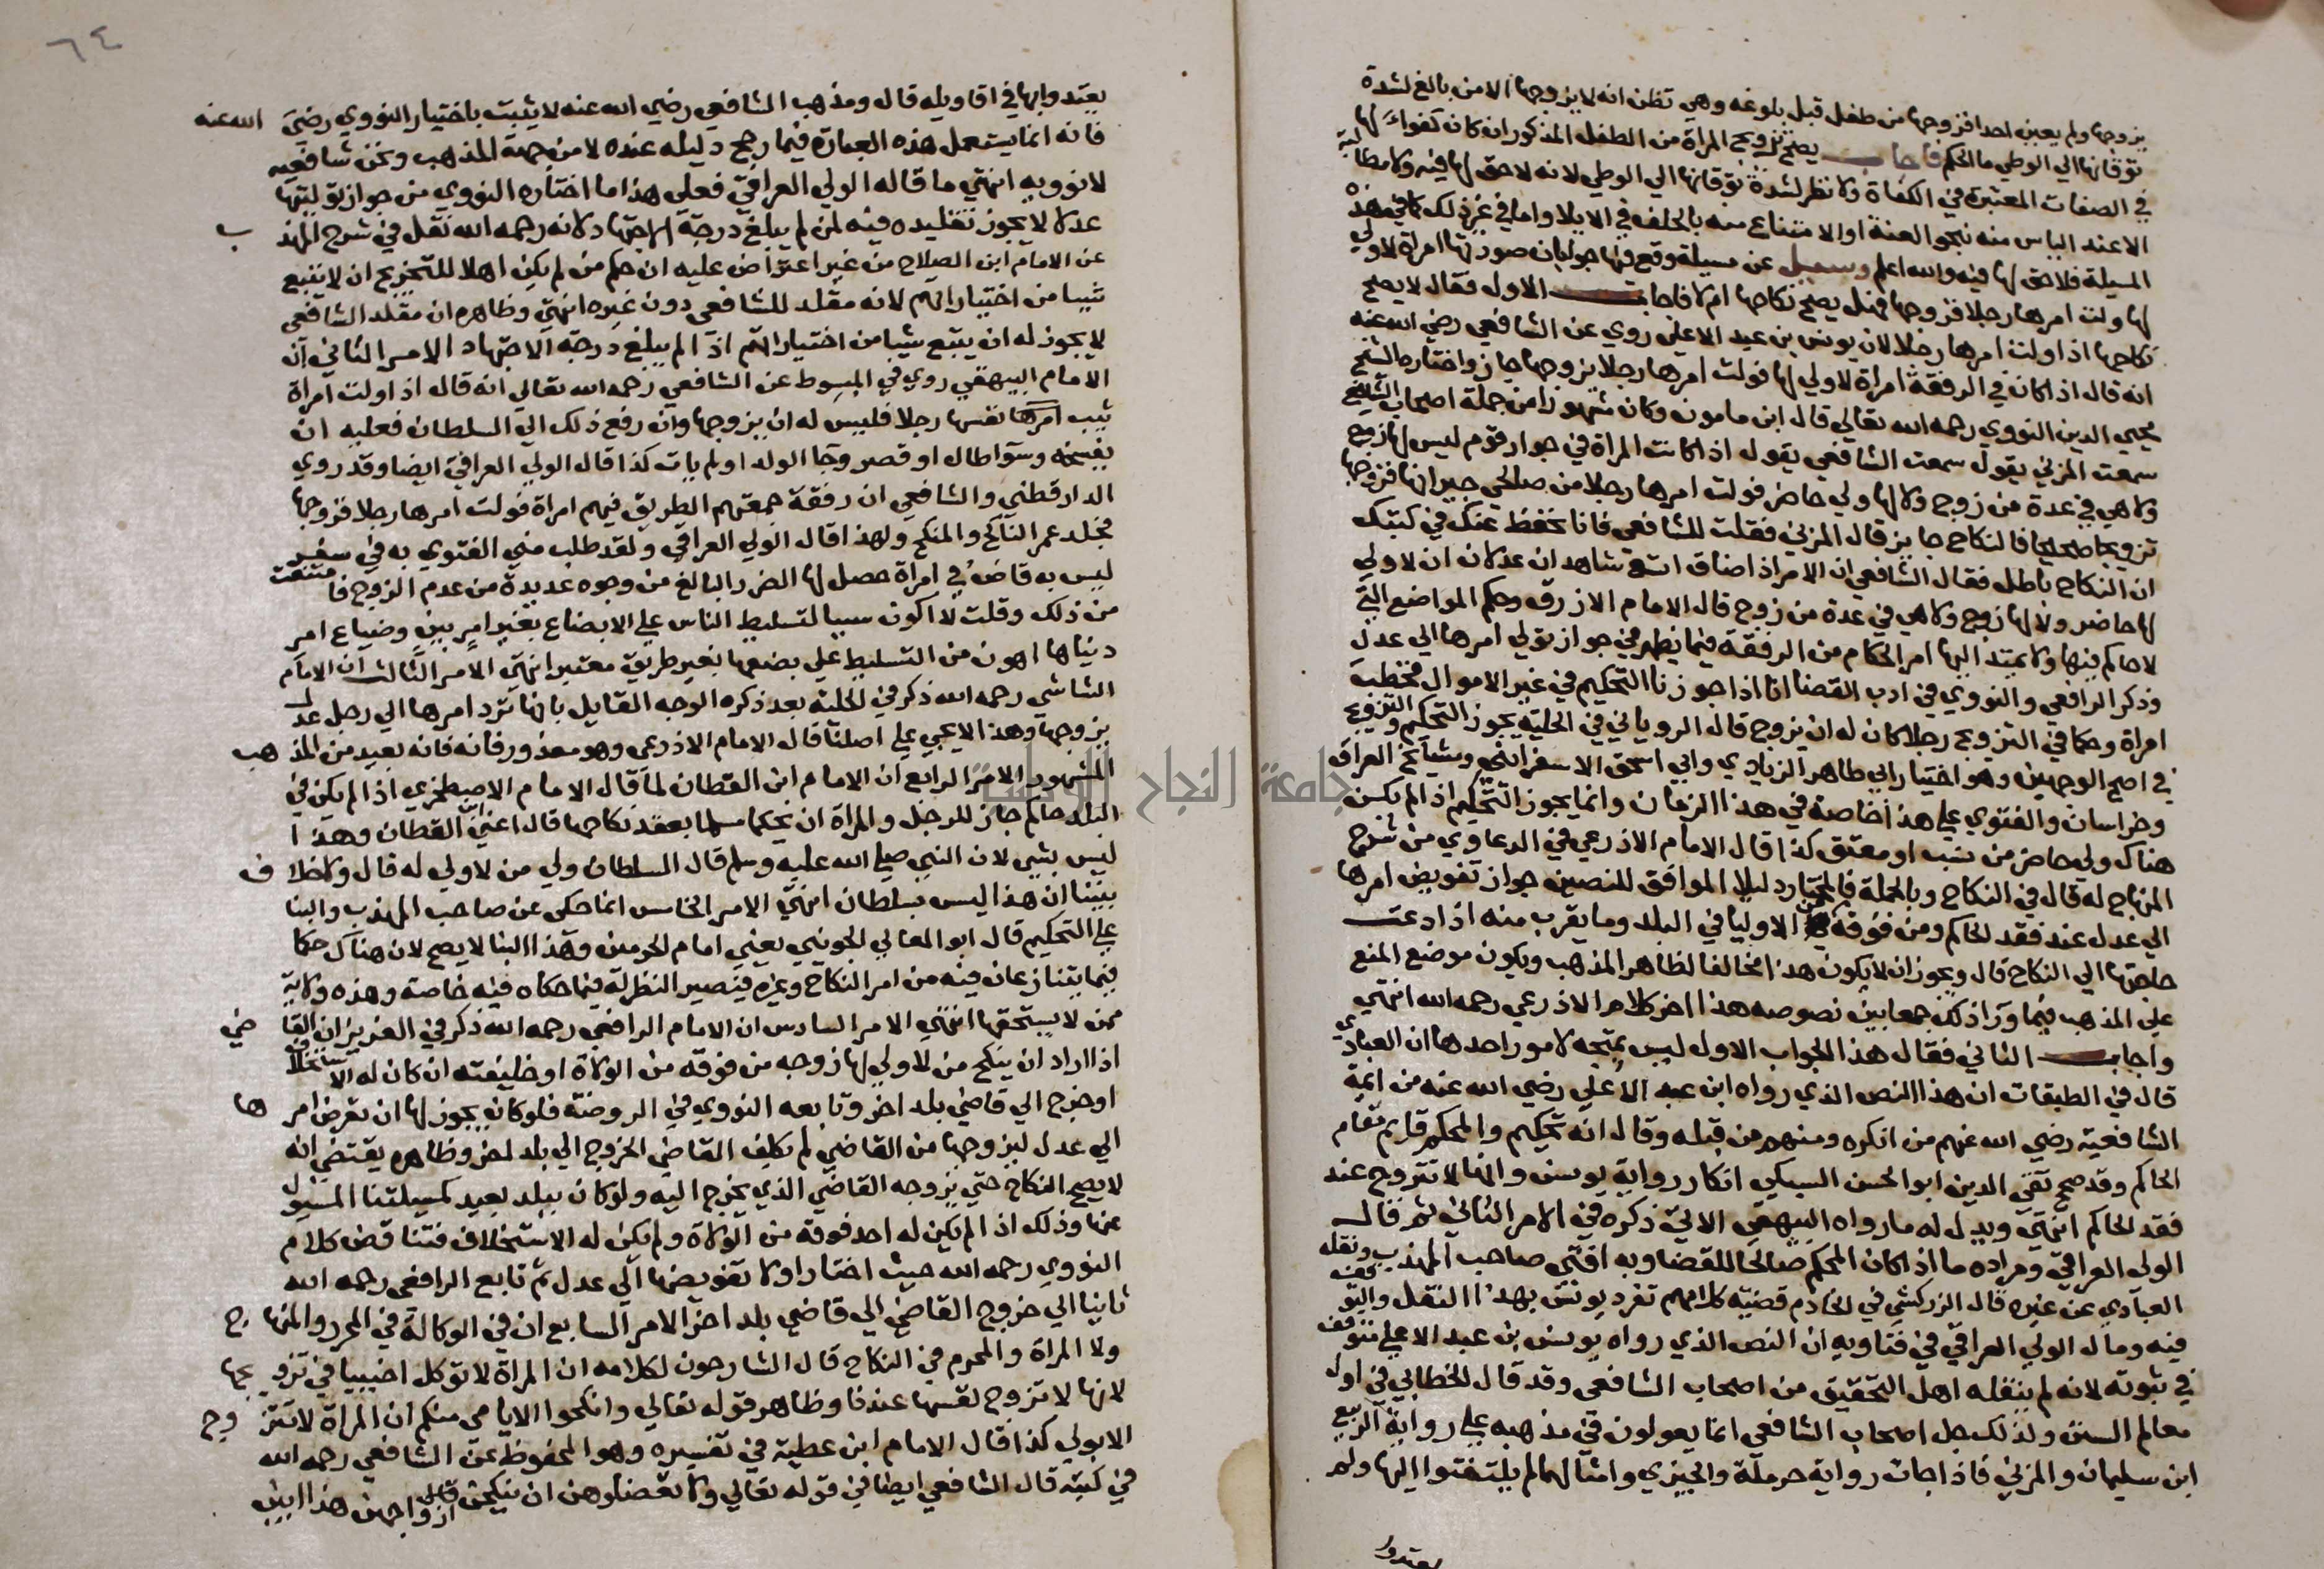 يزوجها ولم يعين احدا فزوجها من طفل قبل بلوغه وهي تظن انه لا يزوجها الا من بالغ لشدة
توقانها الي الوطي ما الحكم فاجاب يصح تزويج المراة من الطفل المذكور ان كان كفواء لها
في الصفات المعتبرة في الكفاة ولا نظر لشدة توقانها الي الوطي لانه لا حق لها فيه ولا مطالبة
الا عند الياس منه بنحو العنة او الامتناع منه بالحلف في الايلا واما في غير ذلك كما في هذه
المسيلة فلا حق لها فيه والله اعلم وسيل عن مسيلة وقع فيها جوابان صورتها امراة لا ولي
لها ولت امرها رجلا فزوجها فهل يصح نكاحها ام لا فاجاب الاول فقال لا يصح
نكاحها اذا ولت امرها رجلا لان يونس بن عبد الاعلي روي عن الشافعي رضي الله عنه
انه قال اذا كان في الرفقة امراة لا ولي لها فولت امرها رجلا يزوجها جاز واختاره الشيخ
محيي الدين النووي رحمه الله تعالي قال ابن مامون وكان مشهورا من جملة اصحاب الشافعي
سمعت المزني يقول سمعت الشافعي يقول اذا كانت المراة في جوار قوم ليس لها زوج
ولا هي في عدة من زوج ولا لها ولي حاضر فولت امرها رجلا من صالحي جيرانها فزوجها
تزويجا صحيحا فالنكاح جايز قال المزني فقلت للشافعي فانا نحفظ عنك في كتبك
ان النكاح باطل فقال الشافعي ان الامر اذا ضاق اتسع شاهدان عدلان ان لا ولي
لها حاضر ولا لها زوج ولا هي في عدة من زوج قال الامام الازرق وحكم المواضع التي
لا حاكم فيها ولا يمتد اليها امر الحكام من الرفقة فيما يظهر في جواز تولي امرها الي عدل
وذكر الرافعي والنووي في ادب القضا انا اذا جوزنا التحكيم في غير الاموال فخطب
امراة وحكما في التزويج رجلا كان له ان يزوج قال الروياني في الحلية يجوز التحكيم والتزويج
في اصح الوجهين وهو اختيار ابي طاهر الزيادي وابي اسحق الاسفرايني ومشايخ العراق
وخراسان والفتوي علي هذا خاصة في هذا الزمان وانما يجوز التحكيم اذا لم يكن
هناك ولي حاضر من نسب او معتق كذا قال الامام الاذرعي في الدعاوي من شرح
المنهاج له قال في النكاح وبالجملة فالمختار دليلا الموافق للنصين جواز تفويض امرها
الي عدل عند فقد الحاكم ومن فوقه من الاوليا في البلد وما يقرب منه اذا دعت
حاجتها الي النكاح قال ويجوز ان لا يكون هذا مخالفا لظاهر المذهب ويكون موضع المنع
علي المذهب فيما وراذلك جمعا بين نصوصه هذا اخر كلام الاذرعي رحمه الله انتهي
واجاب الثاني فقال هذا الجواب الاول ليس بمتجه لامور احدها ان العبادي
قال في الطبقات ان هذا النص الذي رواه ابن عبد الاعلي رضي الله عنه من ايمة
الشافعية رضي الله عنهم من انكره ومنهم من قبله وقال انه تحكيم والمحكم قايم مقام
الحاكم وقد صحح تقي الدين ابو الحسن السبكي انكار رواية يونس وانها لا تتزوج عند
فقد الحاكم انتهي ويدل له ما رواه البيهقي الاتي ذكره في الامر الثاني ثم قال
الولي العراقي ومراده ما اذا كان المحكم صالحا للقضا وبه افتي صاحب المهذب ونقله
العبادي عن غيره قال الزركشي في الخادم قضية كلامهم تفرد يونس بهذا النقل والتوقف
فيه ومال الولي العراقي في فتاويه ان النص الذي رواه يونس بن عبد الاعلي متوقف
في ثبوته لانه لم ينقله اهل التحقيق من اصحاب الشافعي وقد قال الخطابي في اول
معالم السنن ولذلك جل اصحاب الشافعي انما يعولون في مذهبه علي رواية الربيع
ابن سليمان والمزني فاذا جات رواية حرملة والجيزي وامثالهما لم يلتفتوا اليها ولم
يعتدوا
٦٤
يعتدوا بها في اقاويله قال ومذهب الشافعي رضي الله عنه لا يثبت باختيار النووي رضي الله عنه
فانه انما يستعمل هذه العبارة فيما رجح دليله عنده لا من جهة المذهب ونحن شافعية
لا نوويه انتهي ما قاله الولي العراقي فعلي هذا ما اختاره النووي من جواز توليتها
عدلا لا يجوز تقليده فيه لمن لم يبلغ درجة الاجتهاد لانه رحمه الله نقل في شرح المهذب
عن الامام ابن الصلاح من غير اعتراض عليه ان حكم من لم يكن اهلا للتخريج ان لا يتبع
شيا من اختياراتهم لانه مقلد للشافعي دون غيره انتهي وظاهره ان مقلد الشافعي
لا يجوز له ان يتبع شيا من اختياراتهم اذا لم يبلغ درجة الاجتهاد الامر الثاني ان
الامام البيهقي روي في المبسوط عن الشافعي رحمه الله تعالي انه قال اذا ولت امراة
ثيب امرها نفسها رجلا فليس له ان يزوجها وان رفع ذلك الي السلطان فعليه ان
يفسخه وسوا طال او قصر وجا الولد او لم يات كذا قال الولي العراقي ايضا وقد روي
الدارقطني والشافعي ان رفقة جمعتهم الطريق فيهم امراة فولت امرها رجلا فزوجها
فجلد عمر الناكح والمنكح ولهذا قال الولي العراقي ولقد طلب مني الفتوي به في سفر
ليس به قاض في امراة حصل لها الضرر البالغ من وجوه عديدة من عدم الزوج فامتنعت
من ذلك وقلت لا اكون سببا لتسليط الناس علي الابضاع بغير امر بين وضياع امر
دنياها اهون من التسليط علي بضعها بغير طريق معتبر انتهي الامر الثالث ان الامام
الشاشي رحمه الله ذكر في الحلية بعد ذكره الوجه القايل بانها ترد امرها الي رجل عدل
يزوجها وهذا لا يجي علي اصلنا قال الامام الاذرعي وهو معذور فانه فانه بعيد من المذهب
المشهور الامر الرابع ان الامام ابن القطان لما قال الامام الاصطخري اذا لم يكن في
البلد حاكم جاز للرجل والمراة ان يحكما مسلما بعقد نكاحها قال اعني القطان وهذا
ليس بشي لان النبي صلي الله عليه وسلم قال السلطان ولي من لا ولي له قال ولا خلاف
بيننا ان هذا ليس بسلطان انتهي الامر الخامس انما حكي عن صاحب المهذب والبنا
علي التحكيم قال ابو المعالي الجويني يعني امام الحرمين وهذا البنا لا يصح لان هناك حكما
فيما يتنازعان فيه من امر النكاح وغيره فيصير النظر له فيما حكاه فيه خاصة وهذه ولاية
ممن لا يستحقها انتهي الامر السادس ان الامام الرافعي رحمه الله ذكر في العزيز ان القاضي
اذا اراد ان ينكح من لا ولي لها زوجه من فوقه من الولاة او خليفته ان كان له الاستخلاف
او خرج الي قاضي بلد اخر وتابعه النووي في الروضة فلو كان يجوز لها ان تفوض امرها
الي عدل ليزوجها من القاضي لم يكلف القاضي الخروج الي بلد اخر وظاهره يقتضي انه
لا يصح النكاح حتي يزوجه القاضي الذي يخرج اليه ولو كان ببلد بعيد كمسيلتنا المسيول
عنها وذلك اذا لم يكن له احد فوقه من الولاة ولم يكن له الاستخلاف فتناقض كلام
النووي رحمه الله حيث اختار اولا تفويضها الي عدل ثم تابع الرافعي رحمه الله
ثانيا الي خروج القاضي الي قاضي بلد اخر الامر السابع ان في الوكالة في المحرر والمنهاج
ولا المراة والمحرم في النكاح قال الشارحون لكلامه ان المراة لا توكل اجنبيا في تزويجها
لانها لا تزوج نفسها عندنا وظاهر قوله تعالي وانكحوا الايامي منكم ان المراة لا تتزوج
الا بولي كذا قال الامام ابن عطية في تفسيره وهو المحفوظ عن الشافعي رحمه الله
في كتبه قال الشافعي ايضا في قوله تعالي ولا تعضلوهن ان ينكحن ازواجهن هذا ابين
جامعة النجاح الوطنية